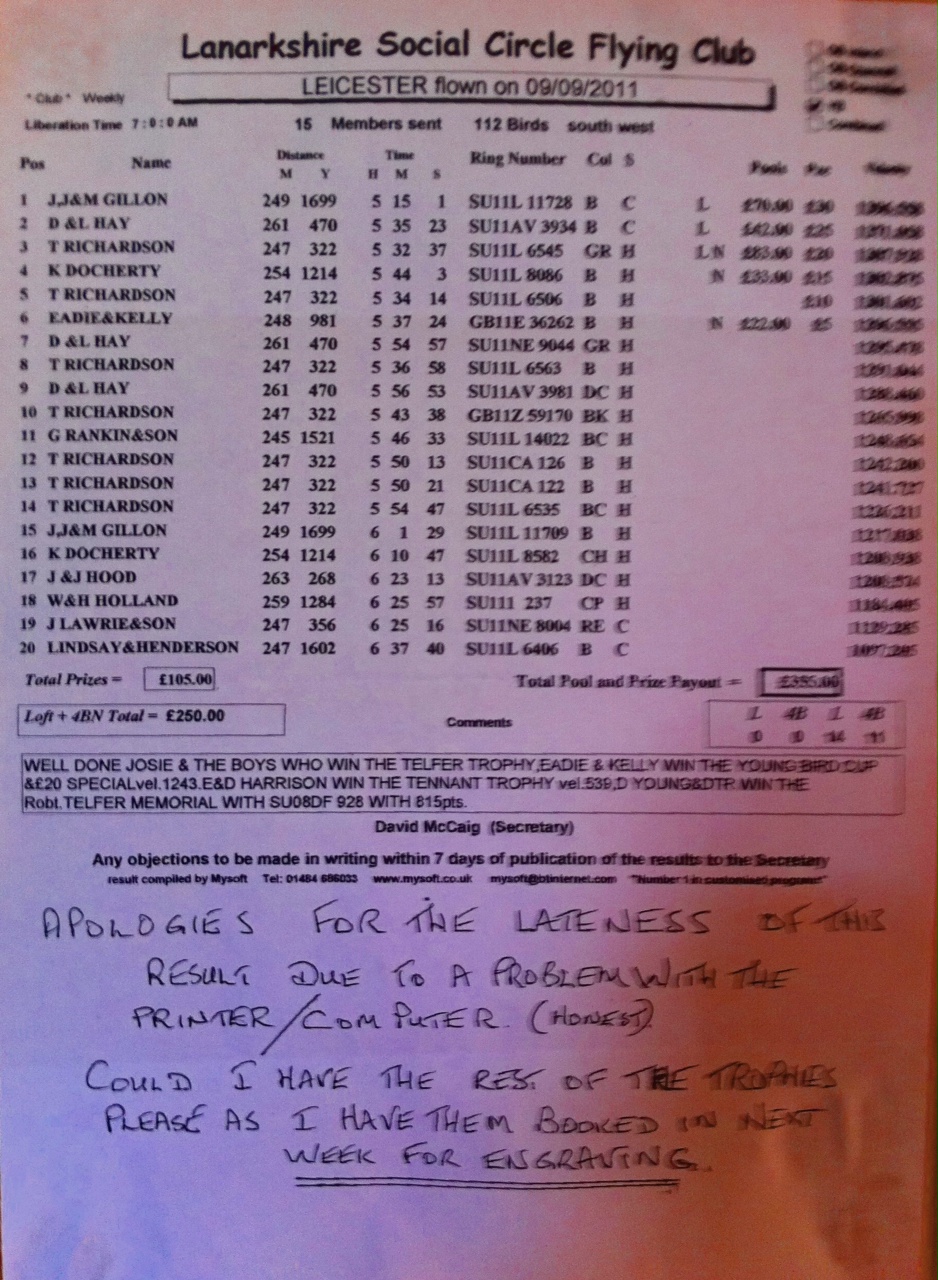 Lanarkshire Social Circle Flying Club
LEICESTER flown on 09/09/2011
* Club * Weekly
Liberation Time 7:0:0 AM 15 Members sent 112 Birds south west
Distance Time
Pos Name M Y H M S Ring Number Col S Pools
1 J,J&M GILLON 249 1699 5 15 1 SU11L 11728 B C L £70.00 £30
2 D &L HAY 261 470 5 35 23 SU11AV 3934 B C L £42.00 £25
3 T RICHARDSON 247 322 5 32 37 SU11L 6545 GR H L N £83.00 £20
4 K DOCHERTY 254 1214 5 44 3 SU11L 8086 B H N £33.00 £15
5 T RICHARDSON 247 322 5 34 14 SU11L 6506 B H £10
6 EADIE&KELLY 248 981 5 37 24 GB11E 36262 B H N £22.00 £5
7 D &L HAY 261 470 5 54 57 SU11NE 9044 GR H
8 T RICHARDSON 247 322 5 36 58 SU11L 6563 B H
9 D &L HAY 261 470 5 56 53 SU11AV 3981 DC H
10 T RICHARDSON 247 322 5 43 38 GB11Z 59170 BK H
11 G RANKIN&SON 245 1521 5 46 33 SU11L 14022 BC H
12 T RICHARDSON 247 322 5 50 13 SU11CA 126 B H
13 T RICHARDSON 247 322 5 50 21 SU11CA 122 B H
14 T RICHARDSON 247 322 5 54 47 SU11L 6535 BC H
15 J,J&M GILLON 249 1699 6 1 29 SU11L 11709 B H
16 K DOCHERTY 254 1214 6 10 47 SU11L 8582 CH H
17 J &J HOOD 263 268 6 23 13 SU11AV 3123 DC H
18 W&H HOLLAND 259 1284 6 25 57 SU111 237 CP H
19 J LAWRIE&SON 247 356 6 25 16 SU11NE 8004 RE C
20 LINDSAY&HENDERSON 247 1602 6 37 40 SU11L 6406 B C
Total Prizes = £105.00 Total Pool and Prize Payout = £355.00
Loft + 4BN Total = £250.00 Comments L 4B L 4B
0 0 14 11
WELL DONE JOSIE & THE BOYS WHO WIN THE TELFER TROPHY,EADIE & KELLY WIN THE YOUNG BIRD CUP
&£20 SPECIALvel.1243.E&D HARRISON WIN THE TENNANT TROPHY vel.539,D YOUNG&DTR WIN THE
Robt.TELFER MEMORIAL WITH SU08DF 928 WITH 815pts.
David McCaig (Secretary)
Any objections to be made in writing within 7 days of publication of the results to the Secretary
result compiled by Mysoft Tel: 01484 686033 www.mysoft.co.uk mysoft@btinternet.com "Number 1 in customised programs"
APOLOGIES FOR THE LATENESS OF THIS
RESULT DUE TO A PROBLEM WITH THE
PRINTER/COMPUTER. (HONEST)
COULD I HAVE THE REST OF THE TROPHIES
PLEASE AS I HAVE THEM BOOKED IN NEXT
WEEK FOR ENGRAVING.